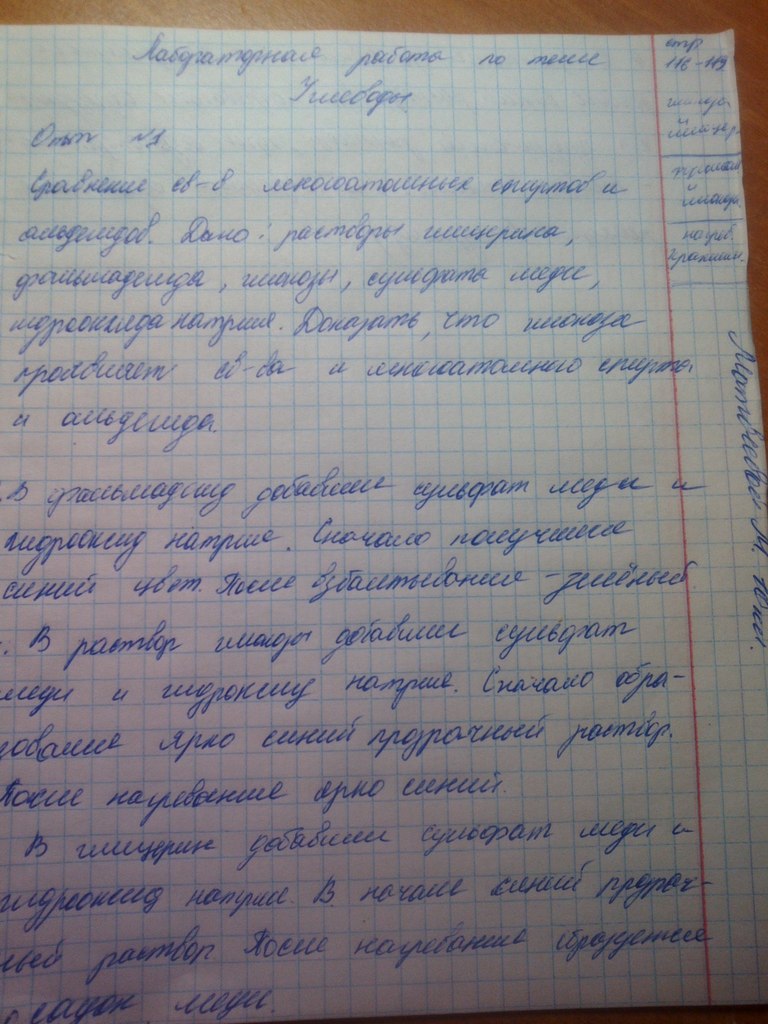 Лабораторная работа по теме
Углеводы.
Опыт №1.
Сравнение св-в многоатомных спиртов и
альдегидов. Дано: растворы глицерина,
фальмадегида, глюкозы, сульфата меди,
гидрооксида натрия. Доказать, что глюкоза
проявляет св-ва и многоатомного спирта
и альдегида.
В фальмадегид добавили сульфат меди и
гидрооксид натрия. Сначало получили
синий цвет. После взбалтывания - зелёный.
В раствор глюкозы добавили сульфат
меди и гидроксид натрия. Сначало обра-
зовался ярко синий прозрачный раствор.
После нагревание ярко синий.
В глицерин добавили сульфат меди и
гидрооксид натрия. В начале синий прозрач-
ный раствор. После нагревание образуется
осадок меди.
стр
116-119
глюкозы
глицер.
нагрев.